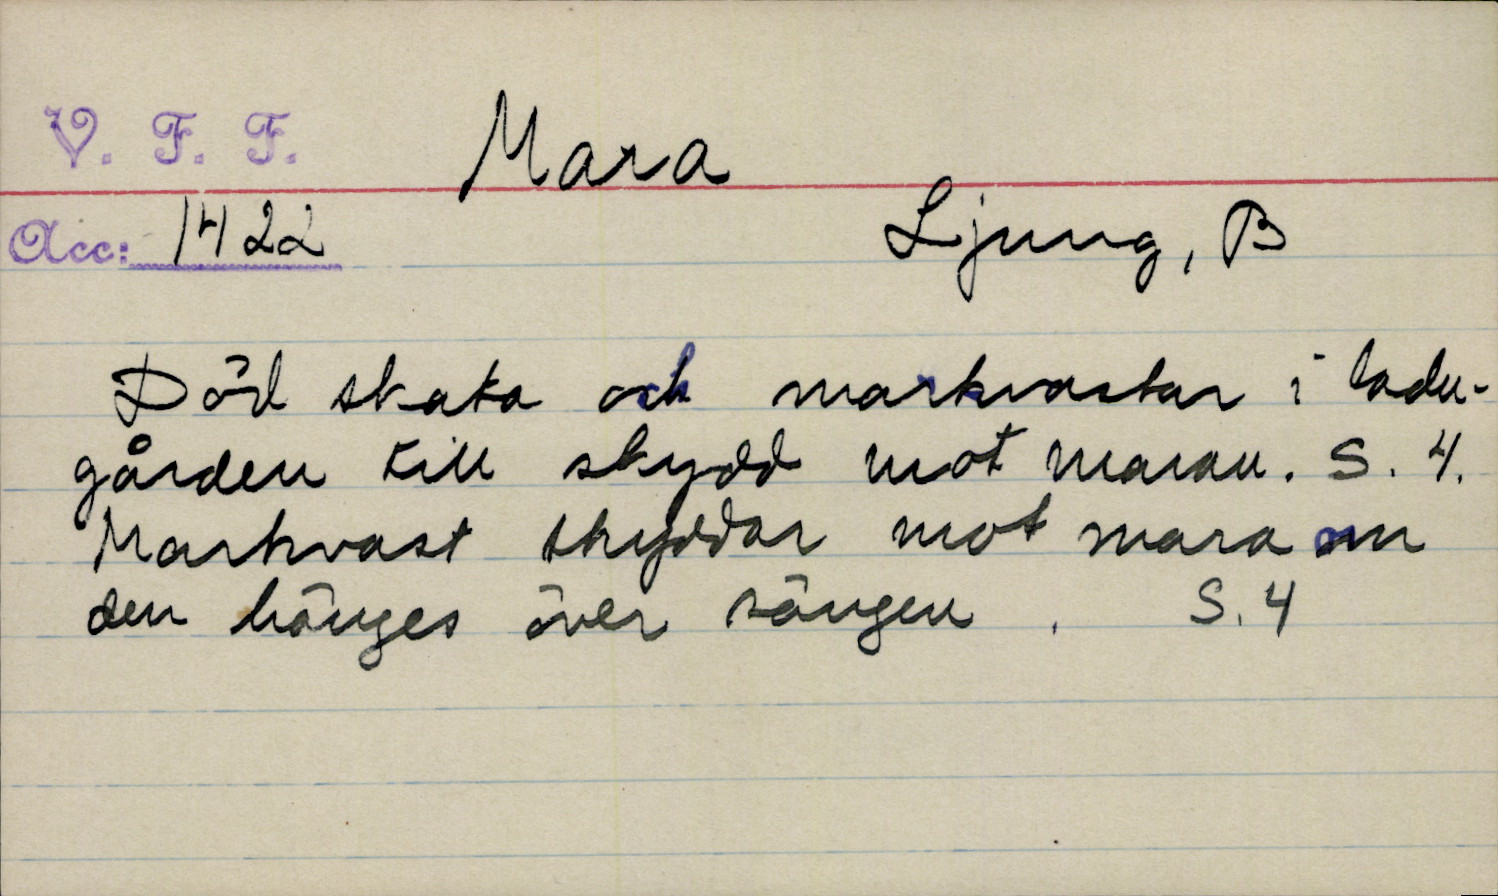 V. F. F. Mara
Acc: 1422 Ljung, B
Död skata och markvastar i ladu-
gården till skydd mot maran. S. 4.
Markvast skyddar mot mara om
den hänges över sängen. S. 4